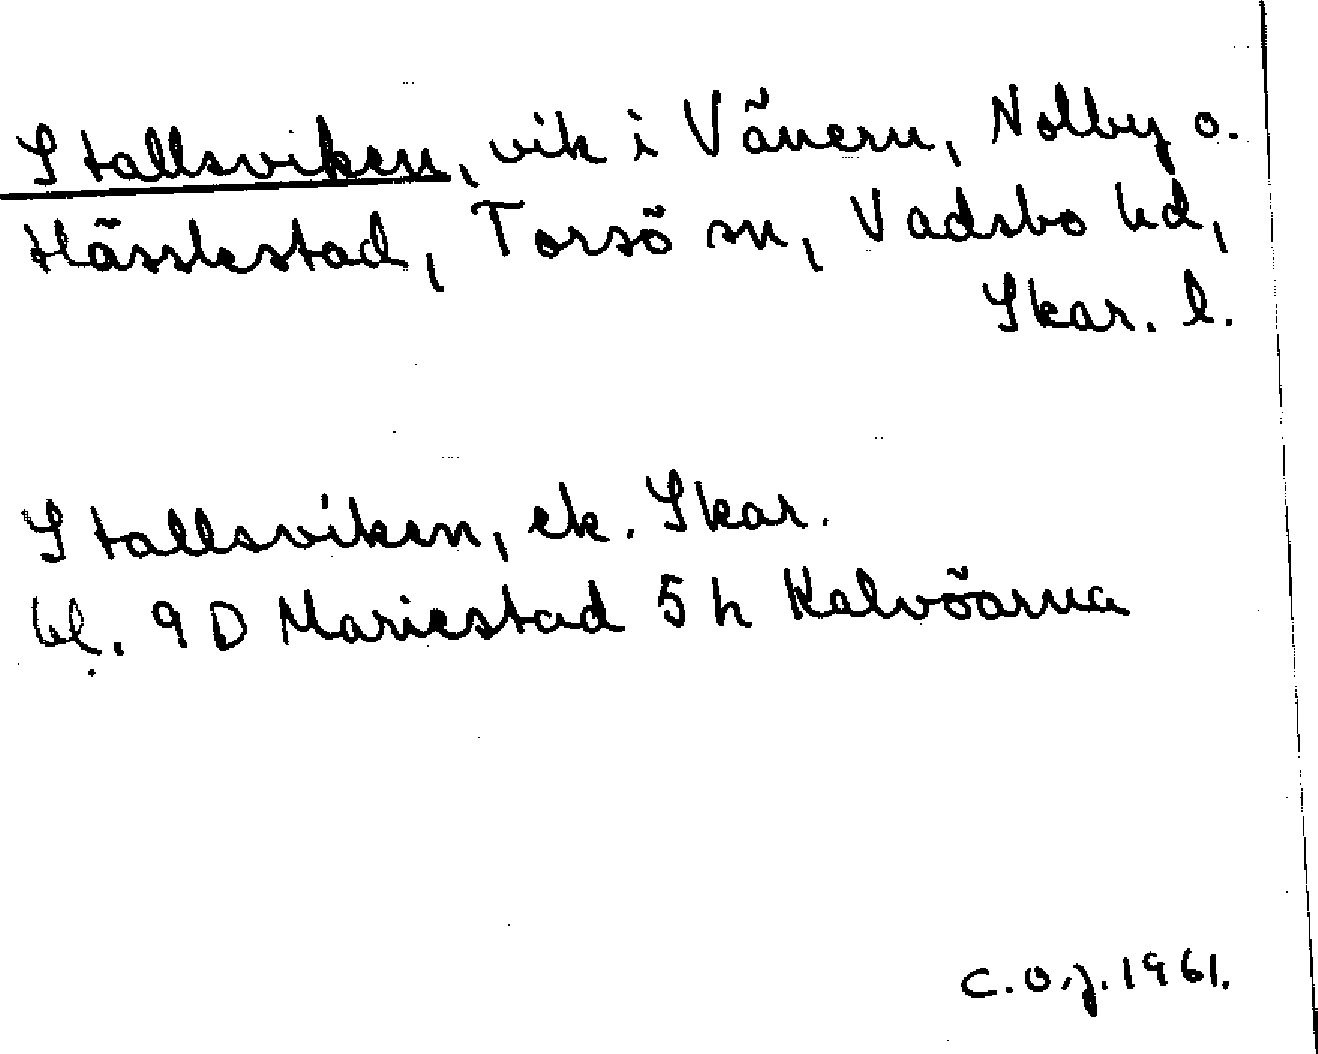 Stallsviken, vik i Vänern, Nolby o.
Hässlestad, Torsö sn, Vadsbo hd,
Skar. l.
Stallsviken, ek. Skar.
bl. 9 D Mariestad 5 h Kalvöarna
C.O.J. 1961.